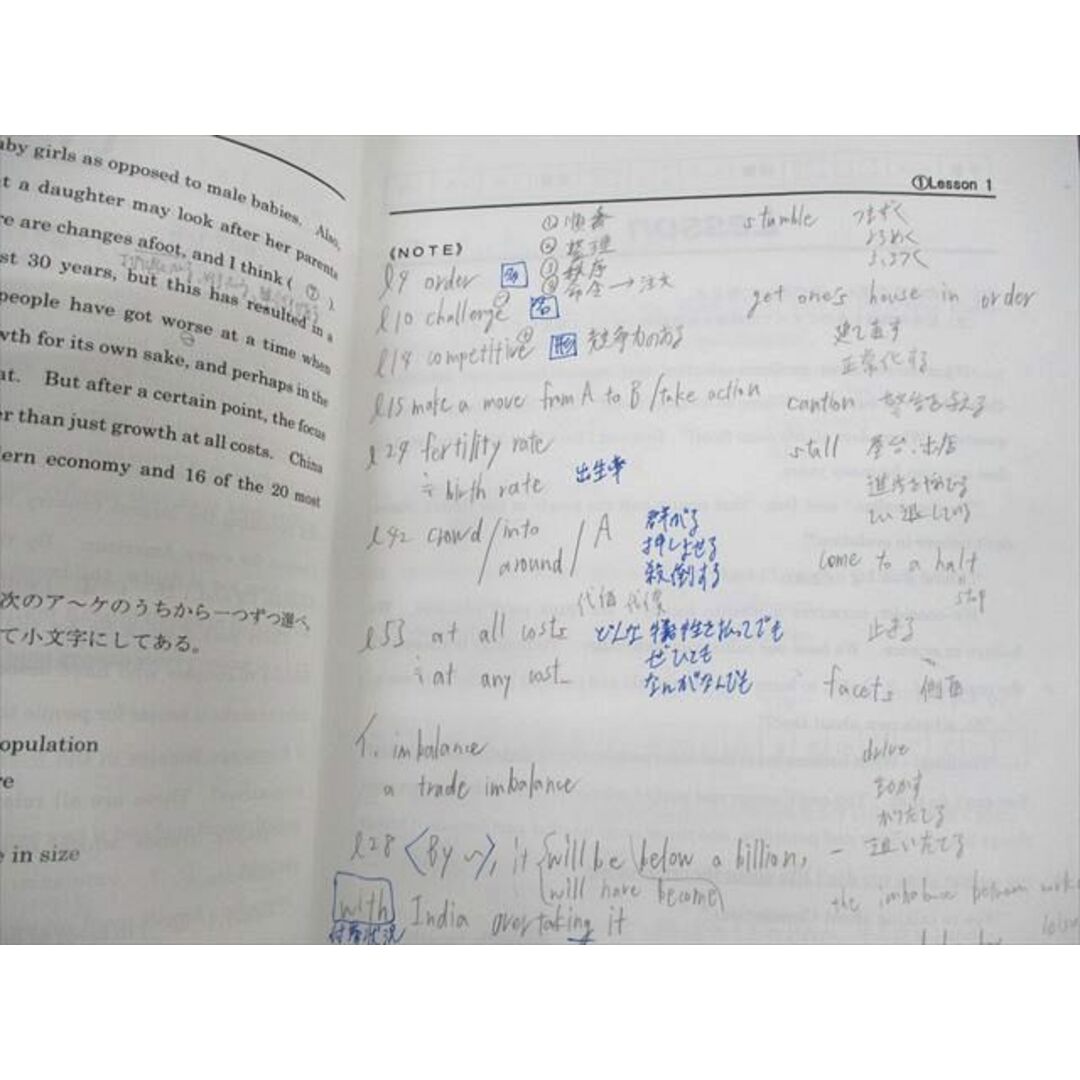 aby girls as opposed to male babies. Also,
t a daughter may look after her parents
re are changes afoot, and I think ( ⑦ ).
st 30 years, but this has resulted in a
people have got worse at a time when
wth for its own sake, and perhaps in the
at. But after a certain point, the focus
er than just growth at all costs. China
ern economy and 16 of the 20 most
次のア〜ケのうちから一つずつ選べ。
て小文字にしてある。
opulation
re
e in size
①Lesson 1
《NOTE》
l9 order 多
①順番
②整理
③秩序
④命令→注文
l10 challenge 名
l14 competitive 形 競争力のある
l15 make a move from A to B / take action
l29 fertility rate
≒ birth rate 出生率
l42 crowd / into
around / A
群がる
押しよせる
殺倒する
代価 代償
l53 at all costs どんな犠牲を払ってでも
ぜひとも
≒ at any cost なにがなんでも
イ. imbalance
a trade imbalance
l28 〈By 〜〉, it will be below a billion,
will have become
with India overtaking it
付帯状況
stumble つまずく
よろめく
get one's house in order
建て直す
正常化する
caution 警告を与える
stall 屋台、出店
come to a halt
stop
止まる
facets 側面
drive
動かす
かりたてる
追いたてる
the imbalance between